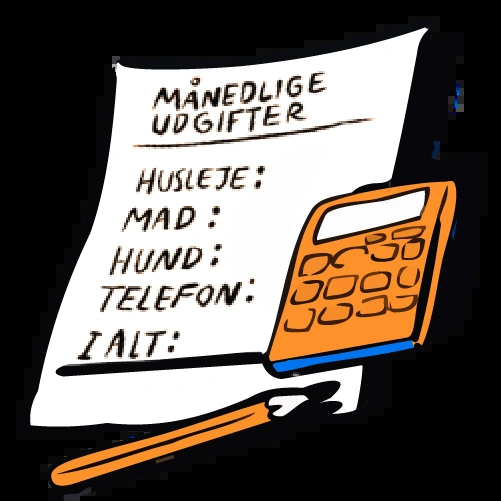 MÅNEDLIGE
UDGIFTER
HUSLEJE:
MAD:
HUND:
TELEFON:
I ALT: